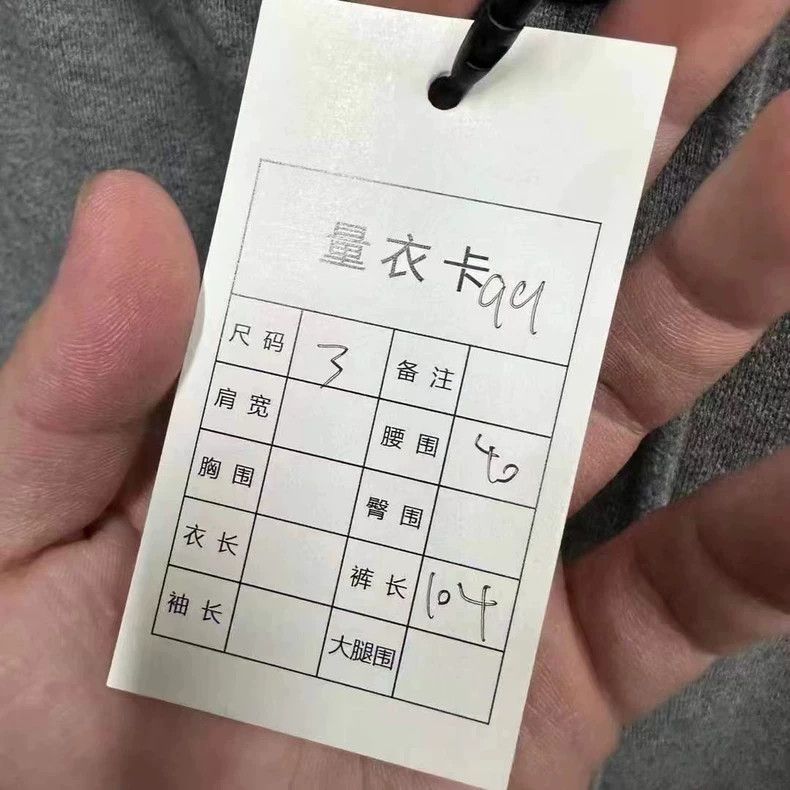 量衣卡 94
尺码 3 备注
肩宽 腰围 40
胸围 臀围
衣长 裤长 104
袖长 大腿围